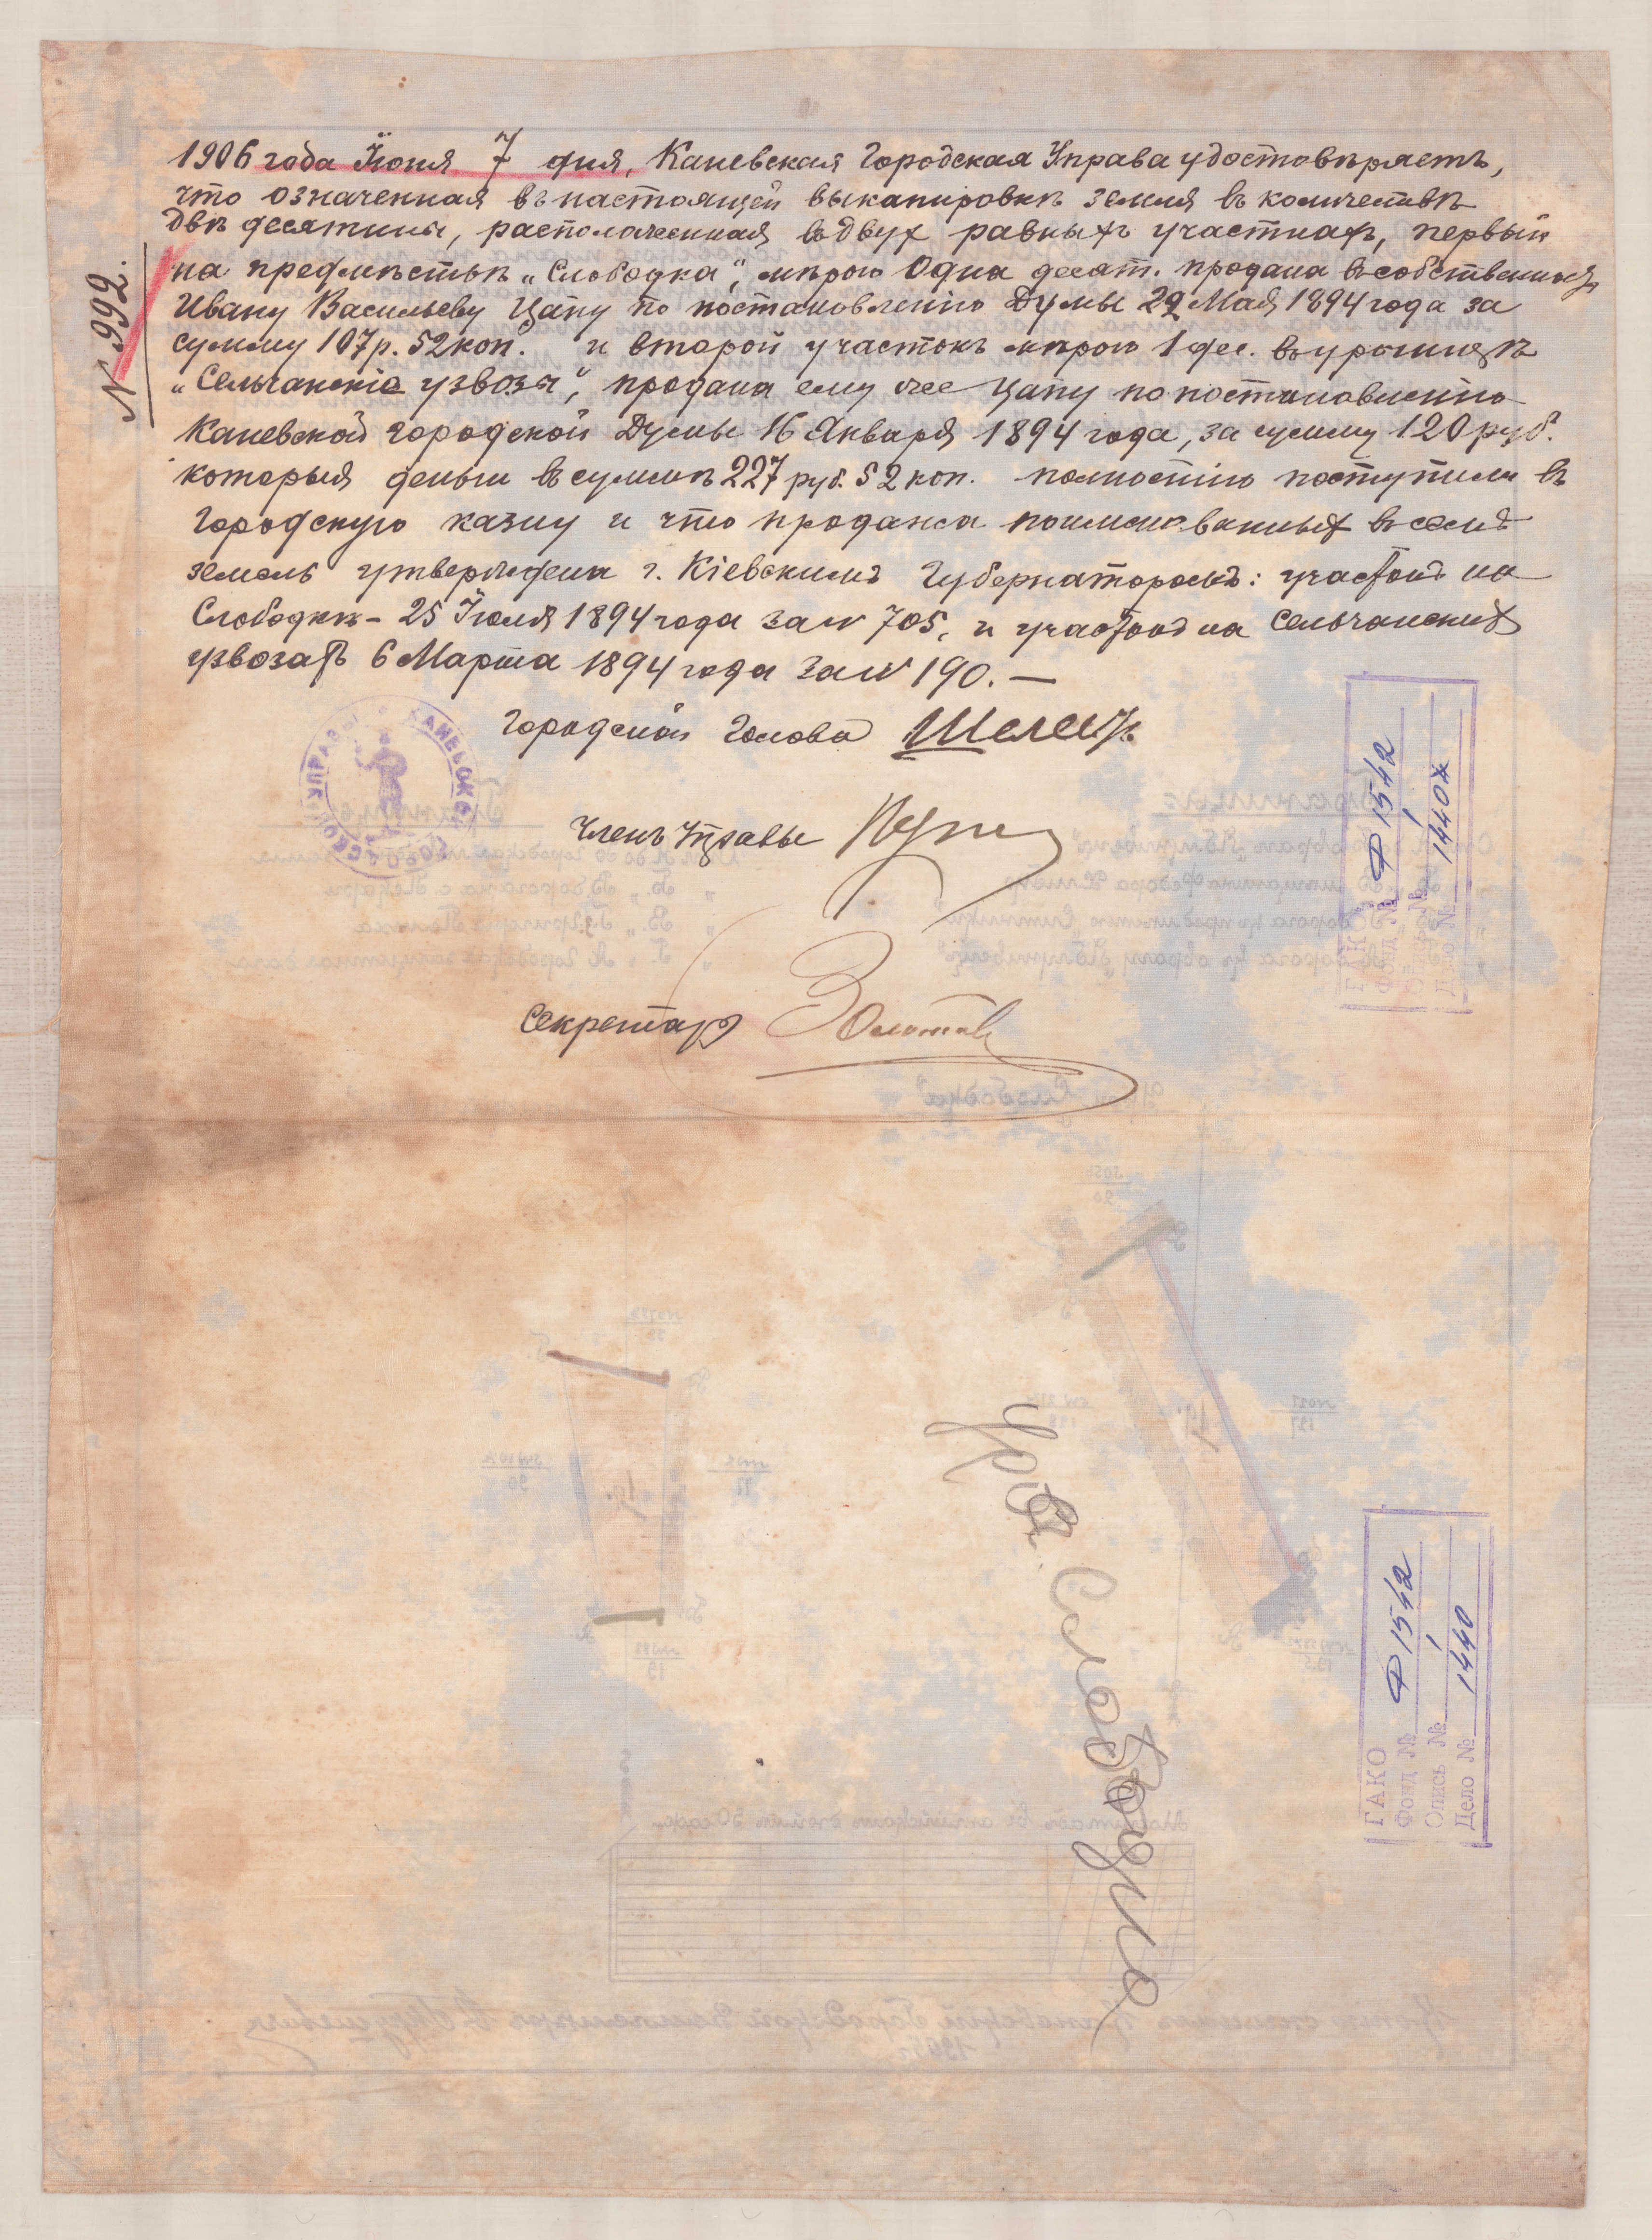 1906 года Іюня 7 дня, Каневская Городская Управа удостовѣряетъ,
что означенная въ настоящей выкапировкѣ земля въ количествѣ
двѣ десятины, расположенная въ двух равныхъ участкахъ, первый
на предмѣстьѣ „Слободка“, мѣрою Одна десят. продана въ собственность
Ивану Васильеву Цапу по постановленію Думы 29 Мая 1894 года за
сумму 107 р. 52 коп. и второй участокъ мѣрою 1 дес. въ урочищѣ
„Сельчанскіе узвозы“, продана ему же Цапу по постановленію
Каневской городской Думы 16 Января 1894 года, за сумму 120 руб.
которыя деньги въ суммѣ 227 руб. 52 коп. полностію поступили въ
городскую казну и что продажа поименованныхъ въ семъ
земель утверждена г. Кіевскимъ Губернаторомъ: участокъ на
Слободкѣ – 25 Іюля 1894 года за № 705, и участокъ на Сельчанскихъ
узвозахъ 6 Марта 1894 года за № 190. —
N 992.
Городской Голова
Членъ Управы
Секретарь
ГАКО
Фонд № Ф 1542
Опись № 1
Дело № 1440
Слободка
ГАКО
Фонд № Ф 1542
Опись № 1
Дело № 1440